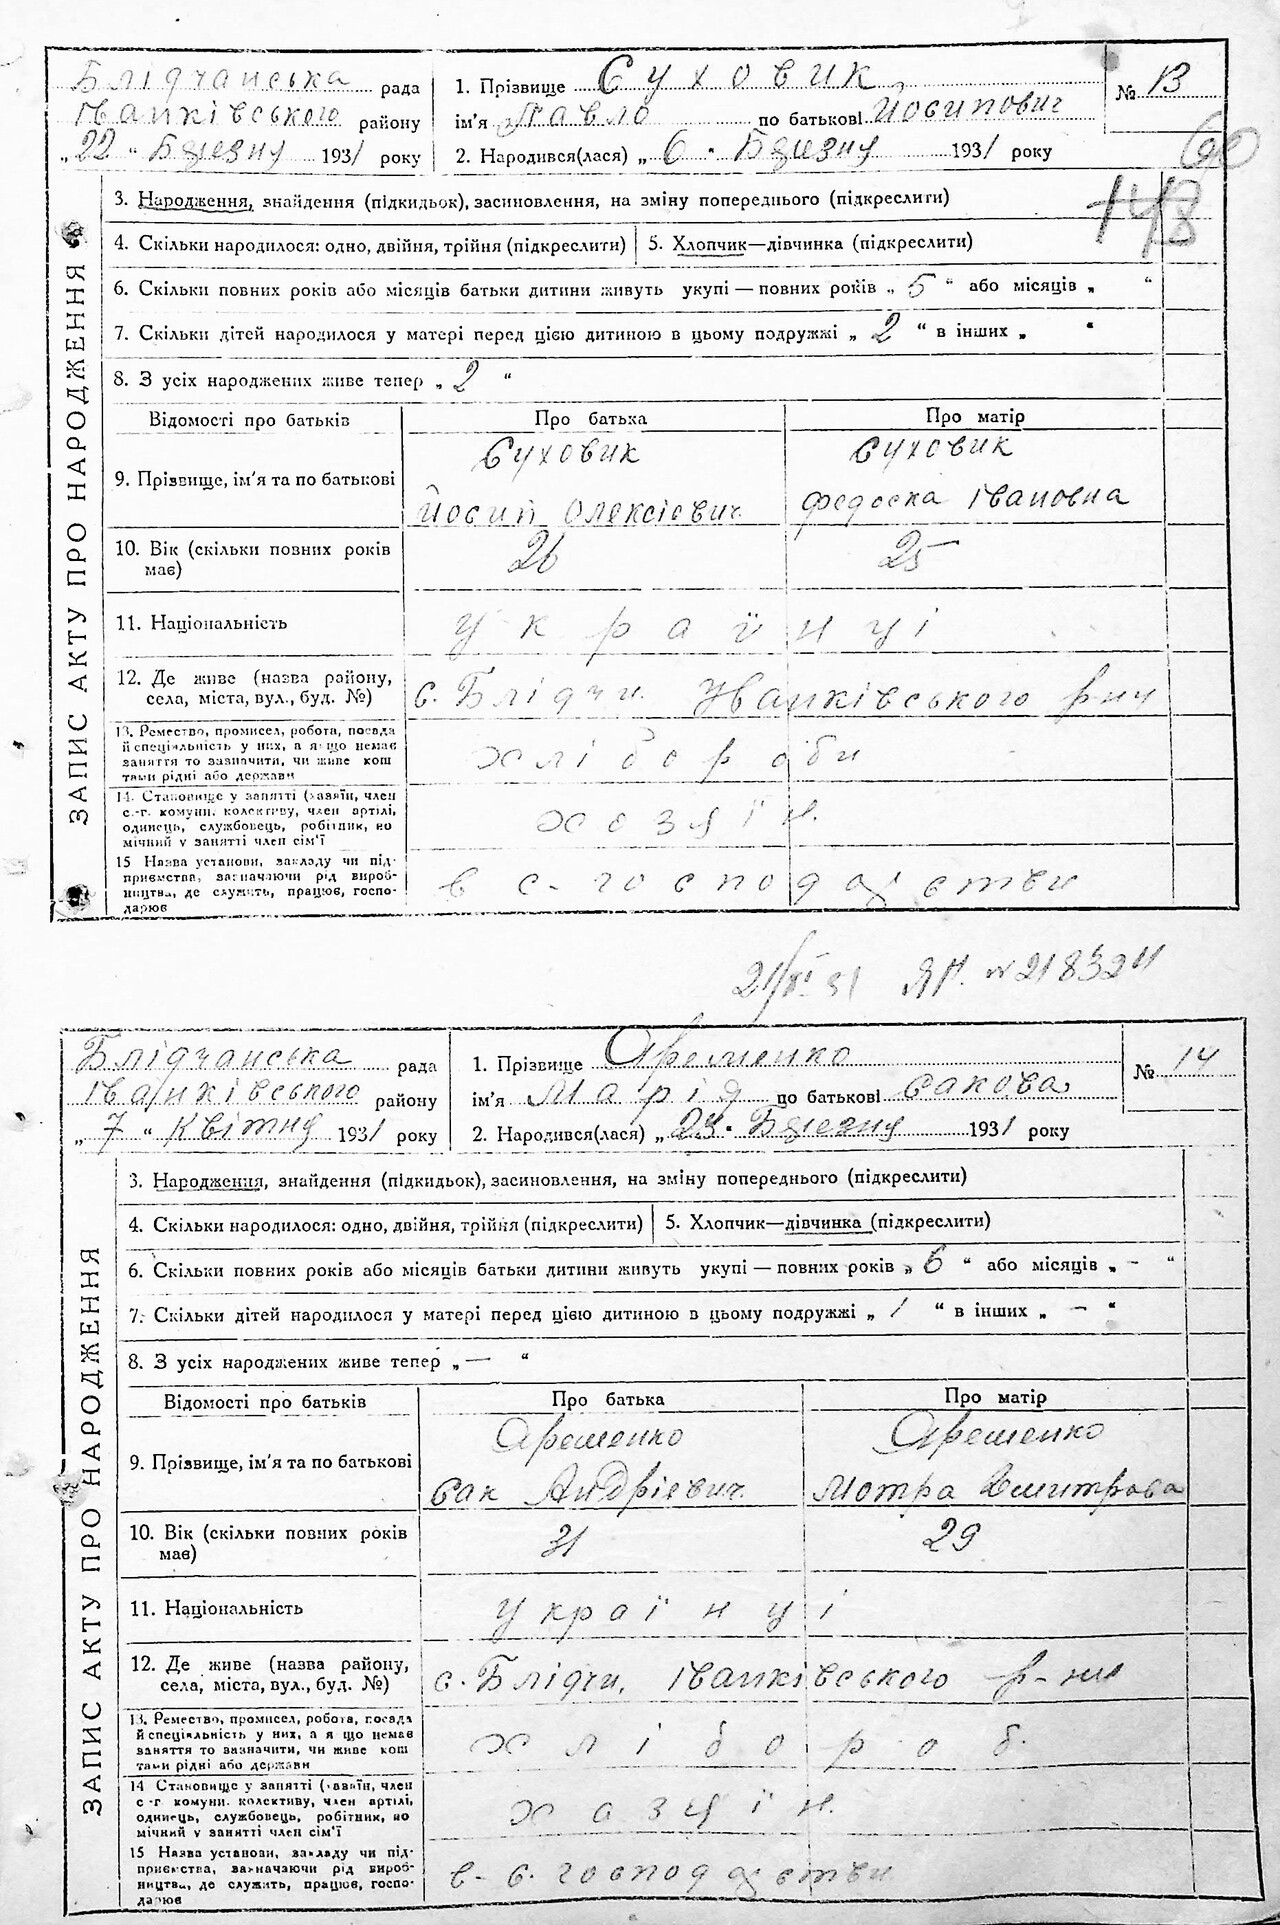 Блідчанська рада
Іванківського району
„22“ Березня 1931 року
1. Прізвище Суховик
ім'я Павло по батькові Йосипович
2. Народився(лася) „6“ Березня 1931 року
№ 13
60
148
ЗАПИС АКТУ ПРО НАРОДЖЕННЯ
3. Народження, знайдення (підкидьок), засиновлення, на зміну попереднього (підкреслити)
4. Скільки народилося: одно, двійня, трійня (підкреслити)
5. Хлопчик—дівчинка (підкреслити)
6. Скільки повних років або місяців батьки дитини живуть укупі — повних років „5“ або місяців „ “
7. Скільки дітей народилося у матері перед цією дитиною в цьому подружжі „2“ в інших „ “
8. З усіх народжених живе тепер „2“
Відомості про батьків Про батька Про матір
9. Прізвище, ім'я та по батькові
Суховик Суховик
Йосип Олексієвич Федоска Івановна
10. Вік (скільки повних років має) 26 25
11. Національність українці
12. Де живе (назва району, села, міста, вул., буд. №) с. Блідчи Иванківського р-ну
13. Ремество, промисел, робота, посада
й спеціяльність у них, а якщо немає
заняття то зазначити, чи живе кош
тами рідні або держави
хлібороби
14. Становище у занятті (хазяїн, член
с.-г. комуни, колективу, член артілі,
одинець, службовець, робітник, по
мічний у занятті член сім'ї
хозяїн.
15 Назва установи, закладу чи під-
приємства, зазначаючи рід вироб-
ництва, де служить, працює, госпо-
дарює
в с-господарстви
21/VI 31 ЯН. № 218324
Блідчанська рада
Іванківського району
„7“ Квітня 1931 року
1. Прізвище Яременко
ім'я Марія по батькові Сакова
2. Народився(лася) „23“ Березня 1931 року
№ 14
ЗАПИС АКТУ ПРО НАРОДЖЕННЯ
3. Народження, знайдення (підкидьок), засиновлення, на зміну попереднього (підкреслити)
4. Скільки народилося: одно, двійня, трійня (підкреслити)
5. Хлопчик—дівчинка (підкреслити)
6. Скільки повних років або місяців батьки дитини живуть укупі — повних років „6“ або місяців „-“
7. Скільки дітей народилося у матері перед цією дитиною в цьому подружжі „1“ в інших „-“
8. З усіх народжених живе тепер „—“
Відомості про батьків Про батька Про матір
9. Прізвище, ім'я та по батькові
Яременко Яременко
Сак Андрієвич Мотра Дмитрова
10. Вік (скільки повних років має) 31 29
11. Національність українці
12. Де живе (назва району, села, міста, вул., буд. №) с. Блідчи, Іванківського р-ну
13. Ремество, промисел, робота, посада
й спеціяльність у них, а якщо немає
заняття то зазначити, чи живе кош
тами рідні або держави
хлібороб.
14 Становище у занятті (хазяїн, член
с-г комуни, колективу, член артілі,
одинець, службовець, робітник, по
мічний у занятті член сім'ї
хазяїн.
15 Назва установи, закладу чи під-
приємства, зазначаючи рід вироб-
ництва, де служить, працює, госпо-
дарює
в-с. господарстви